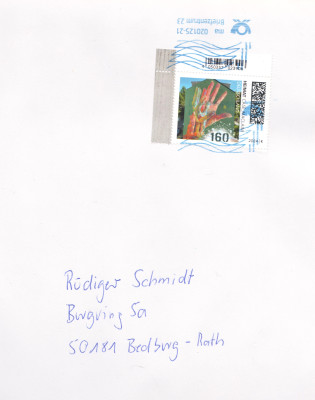 Briefzentrum 23
ma 020125-21
HEIMAT
160
Rüdiger Schmidt
Burgring 5a
50181 Bedburg-Rath